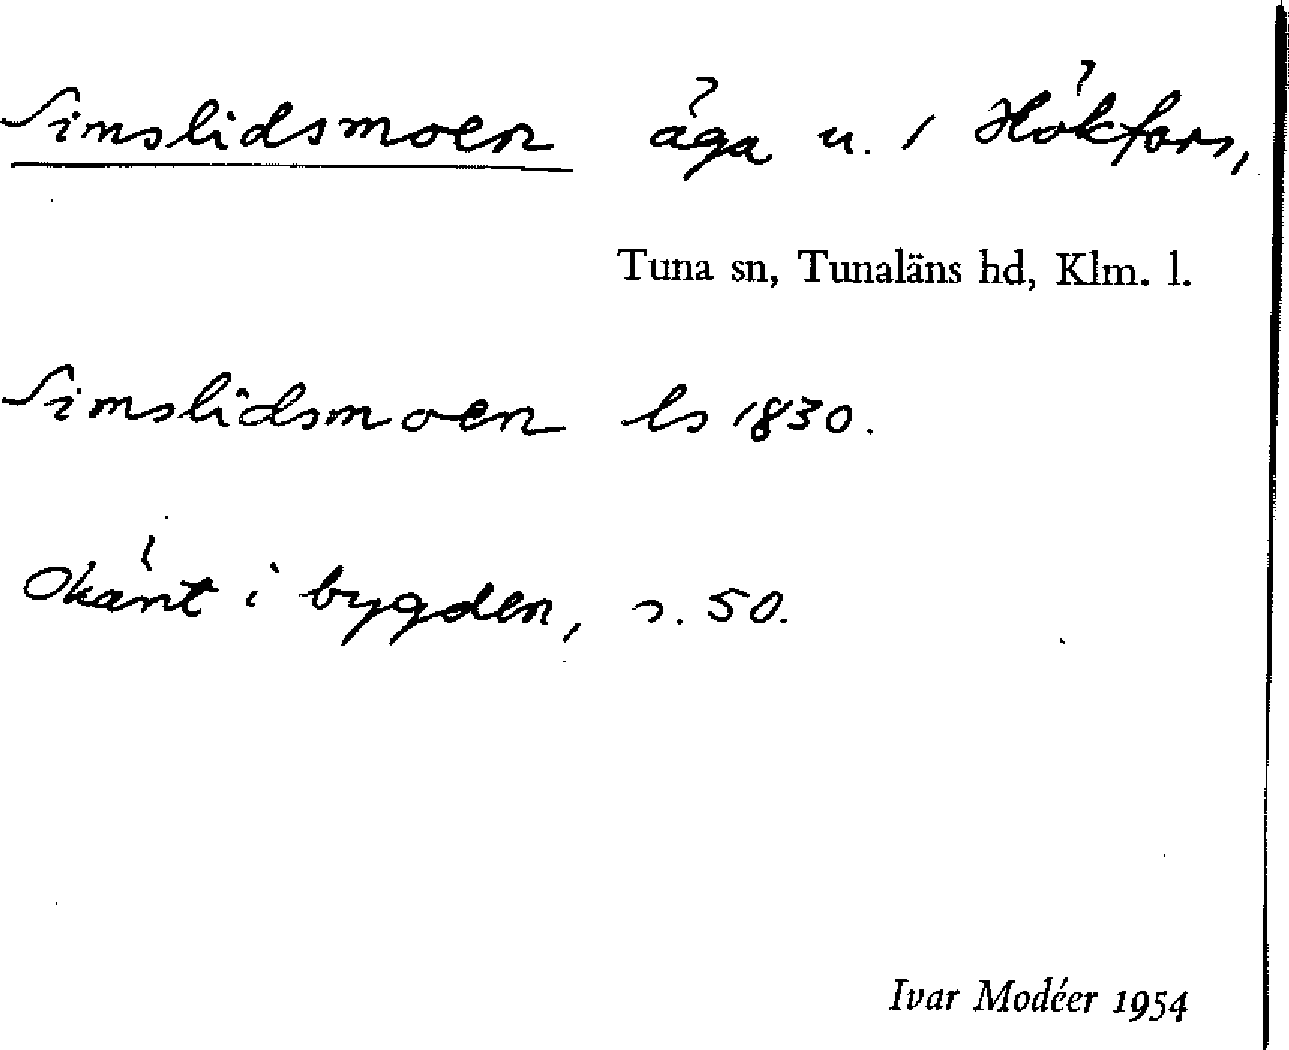 Simslidsmoen äga u. 1 Hökfors,
Tuna sn, Tunaläns hd, Klm. l.
Simslidsmoen ls 1830.
Okänt i bygden, s. 50.
Ivar Modéer 1954